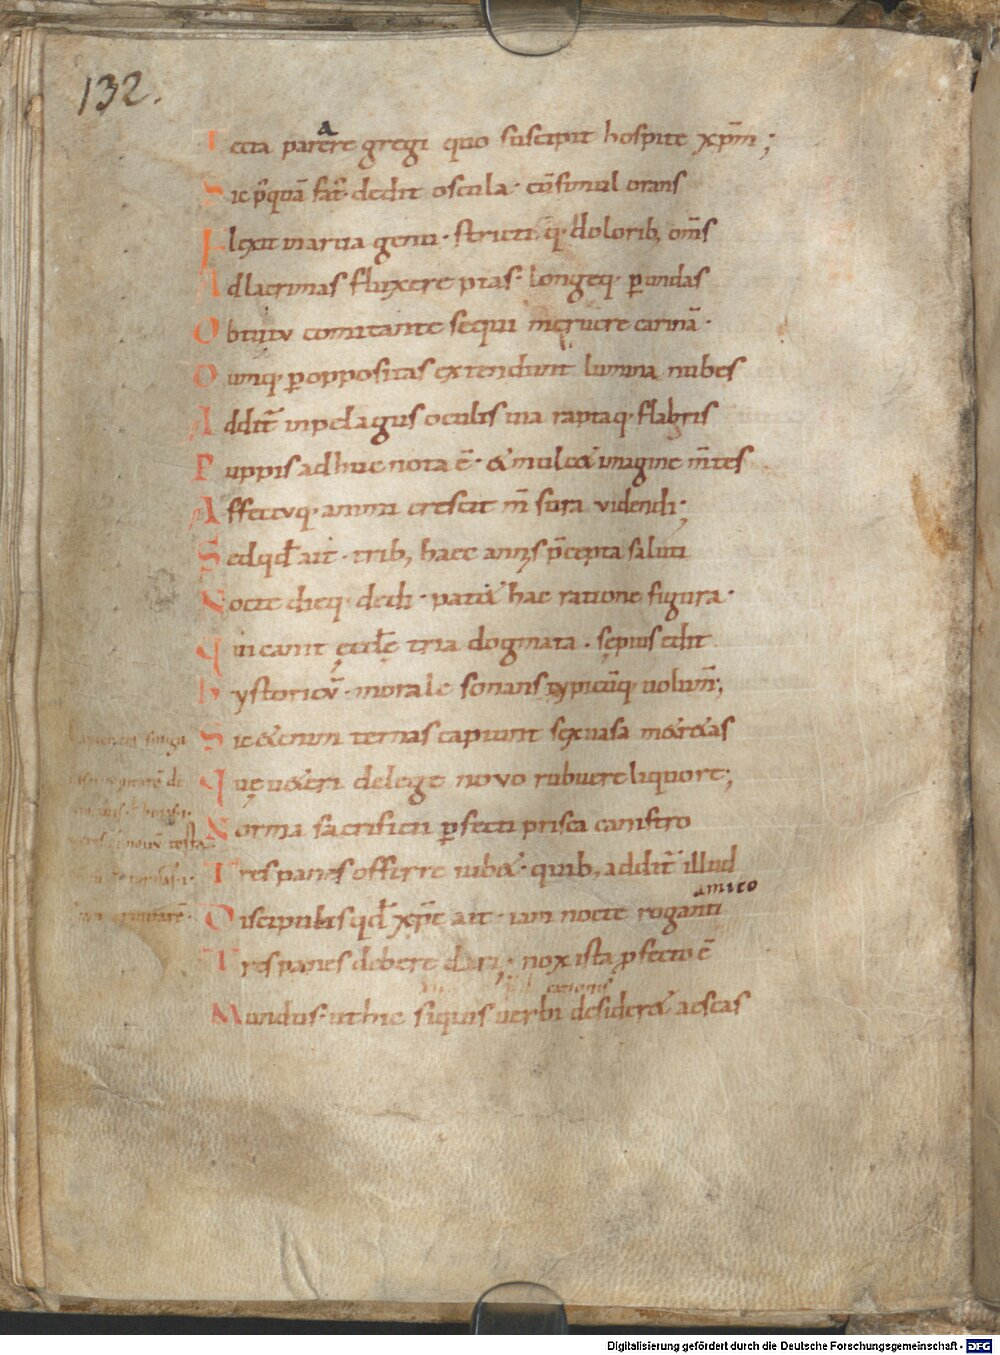 132.
a
Tecta parere gregi quo suscipit hospite xpm̄;
Sic p̄quā fat᷒ dedit oscula · cū simul orans
Flexit in arva genu · stricti q· dolorib; om̄s
Ad lacrimas fluxere pias · longeq· p undas
Obtutu comitante sequi meruere carinā ·
Cumq· p oppositas extendunt lumina nubes
Addit̄ in pelagus oculis via raptaq· flabris
Puppis adhuc nota ē · & mulc& imagine m̄tes
Affectuq· animi crescit videndi;
Sed qđ ait · trib; haec annis p̄cepta saluti
Nocte dieq· dedi · pat& hac ratione figura ·
Qui canit ęccłę tria dogmata · sępius edit
hystoricū · morale sonans typicūq· volum̄;
Sic &enim ternas capiunt sex vasa m&r&as
Quę v&eri de lege novo rubuere liquore;
Norma sacrificii pfecti prisca canistro
Tres panes offerre iub& · quib; addit̄ illud
amico
Discipulis qđ xp̄c ait · iam nocte roganti
Tres panes debere dari · nox ista pfecto ē
Mundus · ut hic siquis verbi desider& aescas
Digitalisierung gefördert durch die Deutsche Forschungsgemeinschaft - DFG